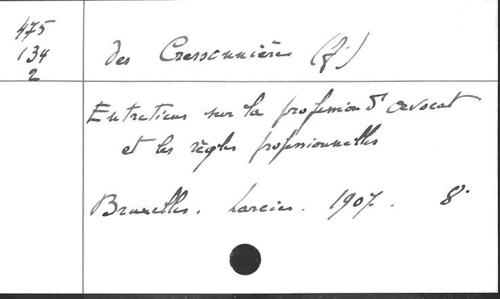 475
134
2
des Cressonnières (J.)
Entretiens sur la profession d'avocat
et les règles professionnelles
Bruxelles. Larcier. 1907. 8°